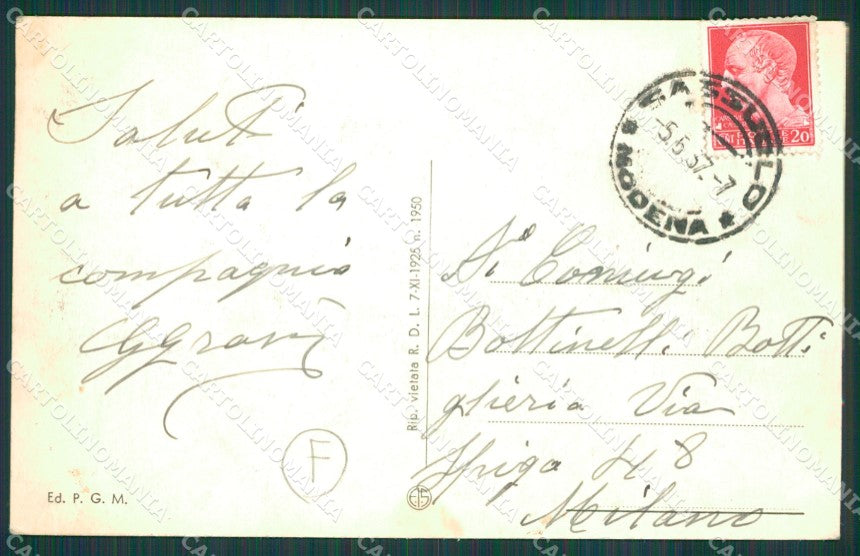 Saluti
a tutta la
compagnia
Ed. P. G. M.
F
Rip. vietata R. D. L. 7-XI-1925 n. 1950
SASSUOLO
* MODENA *
5.6.37.-7
20
Bottinelli Botti
glieria Via
Spiga 48
Milano
CARTOLINOMANIA